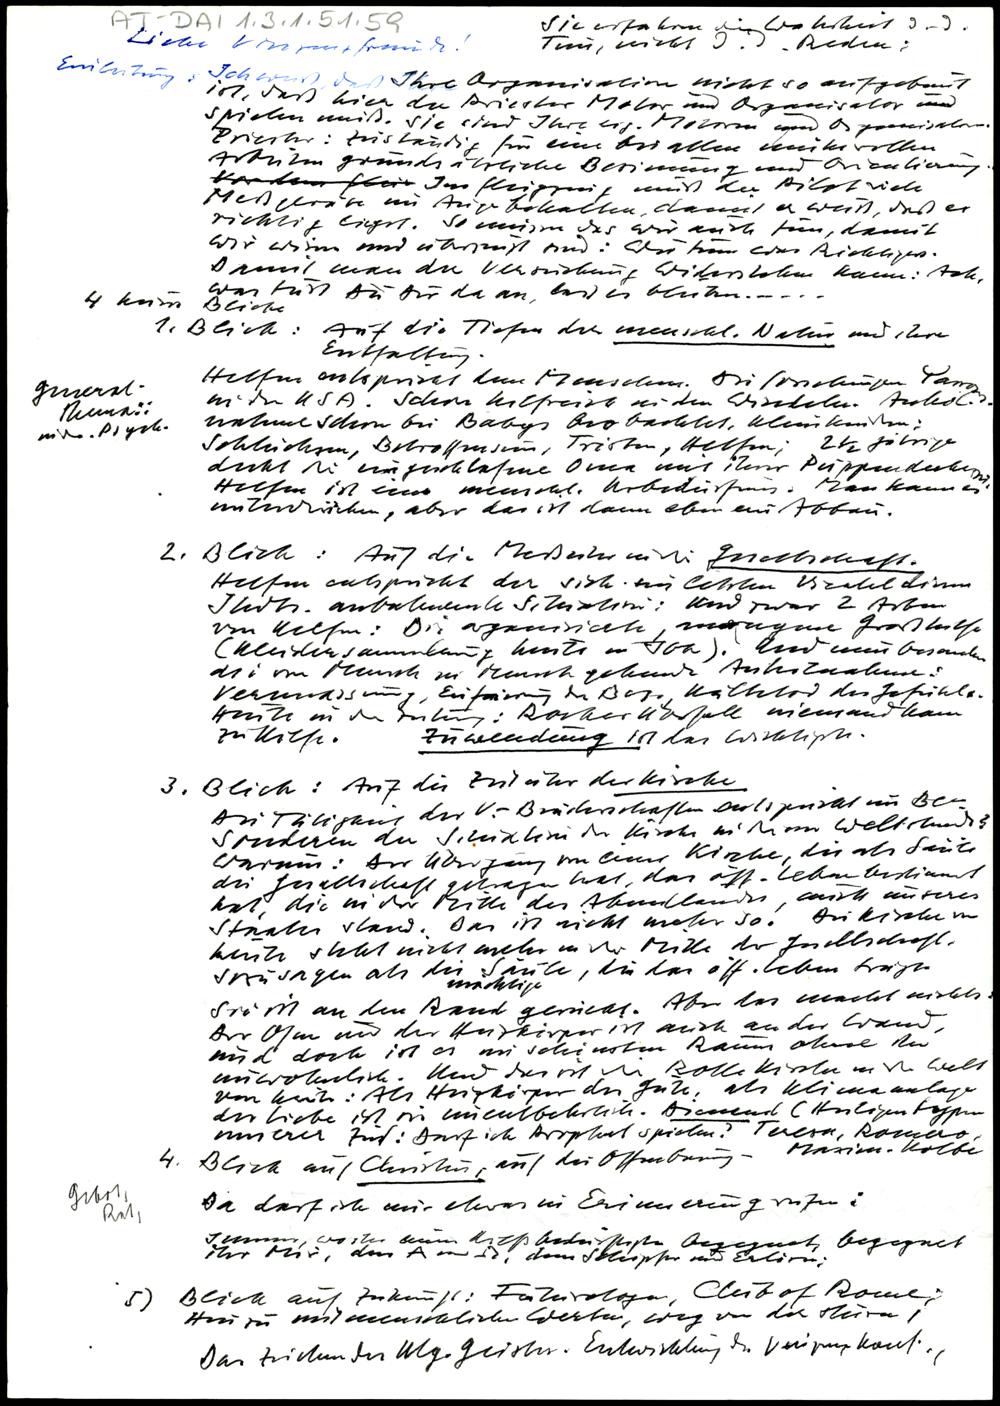 AT-DAI 1.3.1.51.59
Sie erfahren die Wahrheit d. d.
Tun, nicht d. d. Reden;
Liebe Vinzenzfreunde!
Einleitung: Ich weiß, daß Ihre Organisation nicht so aufgebaut
ist, daß hier der Priester Motor und Organisator und
spielen muß. Sie sind Ihre eig. Motoren und Organisatoren.
Priester: zuständig für eine bei allen mühevollen
Arbeiten grundsätzliche Besinnung und Orientierung.
Im Flugzeug muß der Pilot viele
Meßgeräte im Auge behalten, damit er weiß, daß er
richtig liegt. So müssen das wir auch tun, damit
wir wissen und überzeugt sind: Wir tun das Richtige.
Damit man der Versuchung widerstehen kann: Ach,
was tust Du Dir da an, laß es bleiben.....
4 kurze Blicke
1. Blick: Auf die Tiefen der menschl. Natur und ihre
Entfaltung.
General-
thema:
in der Psych.
Helfen entspricht dem Menschen. Die Forschungen
in den USA. Schon hilfreich in den Windeln. Anteil-
nahme schon bei Babys beobachtet, Kleinkinder;
Schluchzen, Betroffensein, Trösten, Helfen; 2½ jährige
deckt die eingeschlafene Oma mit ihrer Puppendecke zu.
Helfen ist eine menschl. Urbedürfnis. Man kann es
unterdrücken, aber das ist dann eben ein Abbau.
2. Blick: Auf die Meßuhr in die Gesellschaft.
Helfen entspricht der sich im letzten Viertel dieses
Jhdts. anbahnende Situation: Und zwar 2 Arten
von Helfen: Die organisierte, Großhilfe
(Kleidersammlung heute in Ibk). Und ganz besonders
die von Mensch zu Mensch gehende Anteilnahme:
Vermassung, Einfrierung der Bez., Kältetod des Gefühls.
Heute in der Zeitung: Rocker Überfall niemand kam
zu Hilfe. Zuwendung ist das Wichtigste.
3. Blick: Auf die Zeituhr der Kirche
Die Tätigkeit der V-Bruderschaften entspricht im Be-
sonderen der Situation der Kirche in dieser Weltstunde
Warum: Der Übergang von einer Kirche, die als Säule
die Gesellschaft getragen hat, das öff. Leben bestimmt
hat, die in der Mitte des Abendlandes, auch unseres
Staates stand. Das ist nicht mehr so. Die Kirche von
heute steht nicht mehr in der Mitte der Gesellschaft.
sozusagen als die mächtige Säule, die das öff. Leben trägt
Sie ist an den Rand gerückt. Aber das macht nichts:
Der Ofen und der Heizkörper ist auch an der Wand,
und doch ist es im schönsten Raum ohne ihn
unwohnlich. Und das ist die Rolle Kirche in der Welt
von heute: Als Heizkörper der Güte, als Klimaanlage
der Liebe ist sie unentbehrlich. Dienend (Heiligentypen
unserer Zeit: Darf ich Prophet spielen? Teresa, Romero,
Maxim. Kolbe
4. Blick auf Christus, auf die Offenbarung -
Gebot,
Rat,
Da darf ich nur etwas in Erinnerung rufen:
Immer, wo ihr einem Hilfsbedürftigen begegnet, begegnet
ihr Mir, dem A und O, dem Schöpfer und Erlöser;
5) Blick auf Zukunft: Futurologen, Club of Rome;
Hin zu mitmenschlichen Werten, weg von der
Das Zeichen des Hlg. Geistes. Entwicklung der Vinzenzkonf.,